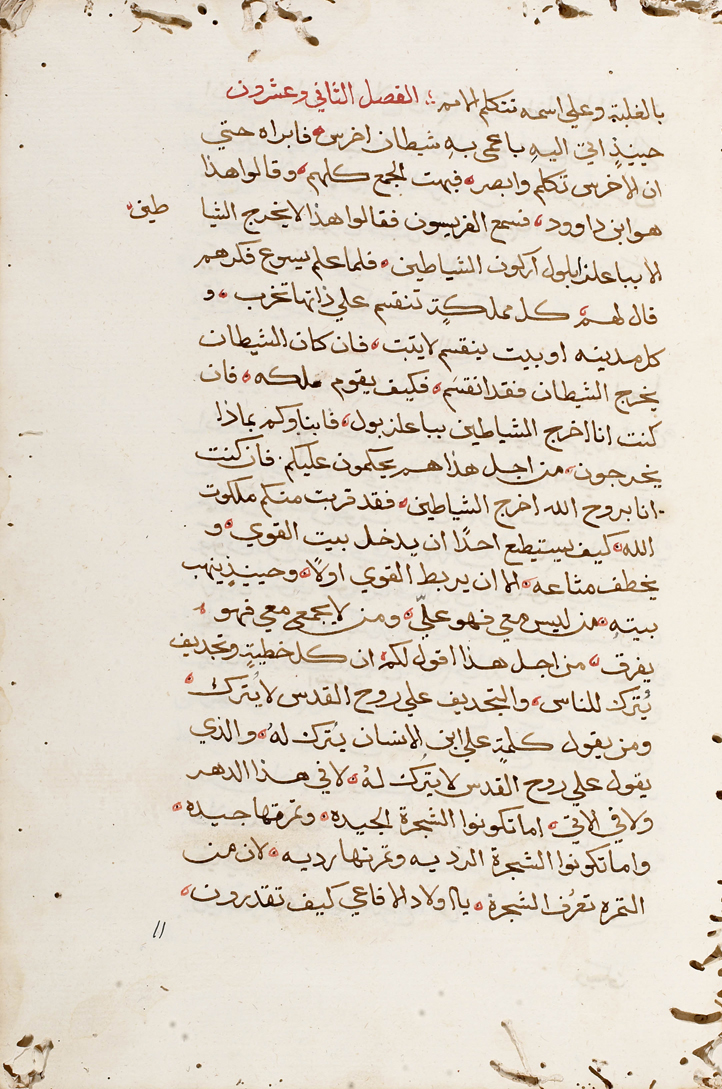 بالغلبة وعلي اسمه تتكلم الامم ⁘ الفصل الثاني وعشرون
حينيذٍ اتي اليهِ باعمي بهِ شيطان اخرس فابراه حتي
ان الاخرس تكلم وابصر فبهت الجمع كلهم وقالوا هذا
هو ابن داوود فسمع الفريسون فقالوا هذا لا يخرج الشيا
طين
الا بباعلزابلول اركون الشياطين فلما علم يسوع فكرهم
قال لهم كل مملكةٍ تنقسم علي ذاتها تخرب و
كل مدينه او بيت ينقسم لا يتبت فان كان الشيطان
يخرج الشيطان فقد انقسم فكيف يقوم ملكه فان
كنت انا اخرج الشياطين بباعلزبول فابناوكم بماذا
يخرجون من اجل هذا هم يحكمون عليكم فان كنت
انا بروح الله اخرج الشياطين فقد قربت منكم ملكوت
الله كيف يستطيع احدًا ان يدخل بيت القوي و
يخطف متاعه الا ان يربط القوي اولًا وحينيذٍ ينهب
بيته من ليس معي فهو عليّ ومن لا يجمع معي فهو
يفرق من اجل هذا اقول لكم ان كل خطيةٍ وتجديف
يُترك للناس والتجديف علي روح القدس لا يُترك
ومن يقول كلمةٍ علي ابن الانسان يُترك لهُ والذي
يقول علي روح القدس لا يترك لهُ لا في هذا الدهر
ولا في الاتي اما تكونوا الشجرة الجيده وتمرتها جيده
واما تكونوا الشجرة الرديه وتمرتها رديه لان من
التمره تعرف الشجرة يا اولاد الافاعي كيف تقدرون
11